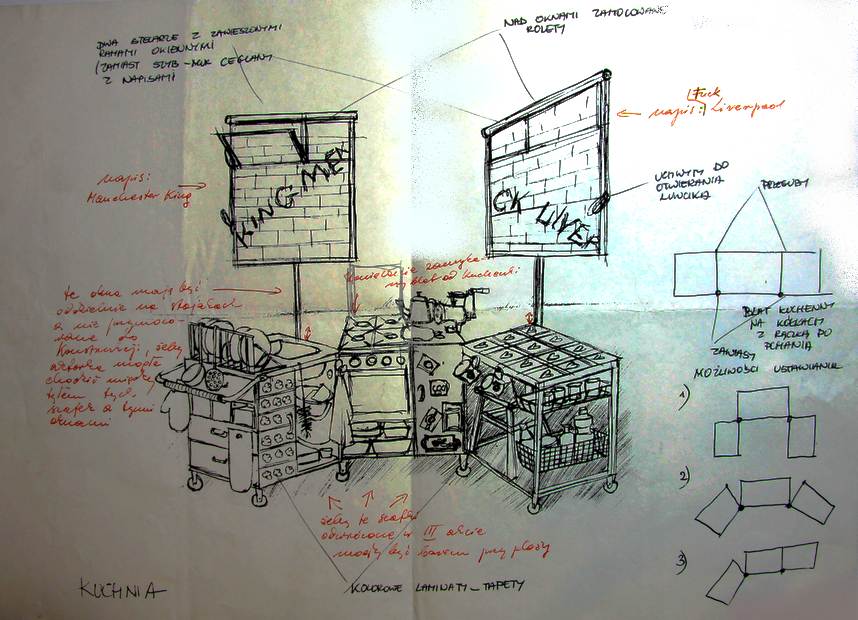 DWA STELARZE Z ZAWIESZONYMI
RAMAMI OKIENNYMI
(ZAMIAST SZYB - MUR CEGLANY
Z NAPISAMI
NAD OKNAMI ZAMOCOWANE
ROLETY
Fuck
napis: Liverpool
napis:
Manchester King
KING MEK
CK LIVER
UCHWYT DO
OTWIERANIA
LUFCIKA
PRZEGUBY
te okna mają być
oddzielnie na stojakach
a nie przymoco-
wane do
konstrukcji, żeby
aktorka mogła
chodzić między
tyłem tych
szafek a tymi
oknami
BLAT KUCHENNY
NA KÓŁKACH
Z RĄCZKĄ DO
PCHANIA
ZAWIASY
MOŻLIWOŚCI USTAWIANIA
1)
2)
3)
żeby te szafki
odwrócone w III akcie
mogły być barem przy plaży
KUCHNIA
KOLOROWE LAMINATY - TAPETY